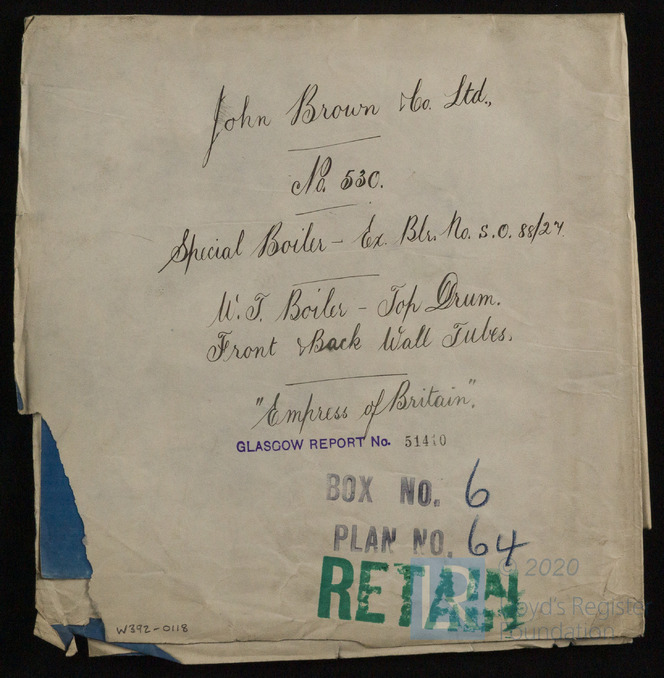 John Brown & Co. Ltd.,
No. 530.
Special Boiler - Ex. Blr. No. S.O. 88/27.
W.T. Boiler - Top Drum.
Front & Back Wall Tubes.
"Empress of Britain".
GLASGOW REPORT No. 51410
BOX NO. 6
PLAN NO. 64
RETAIN
© 2020
Lloyd's Register
Foundation
W392-0118